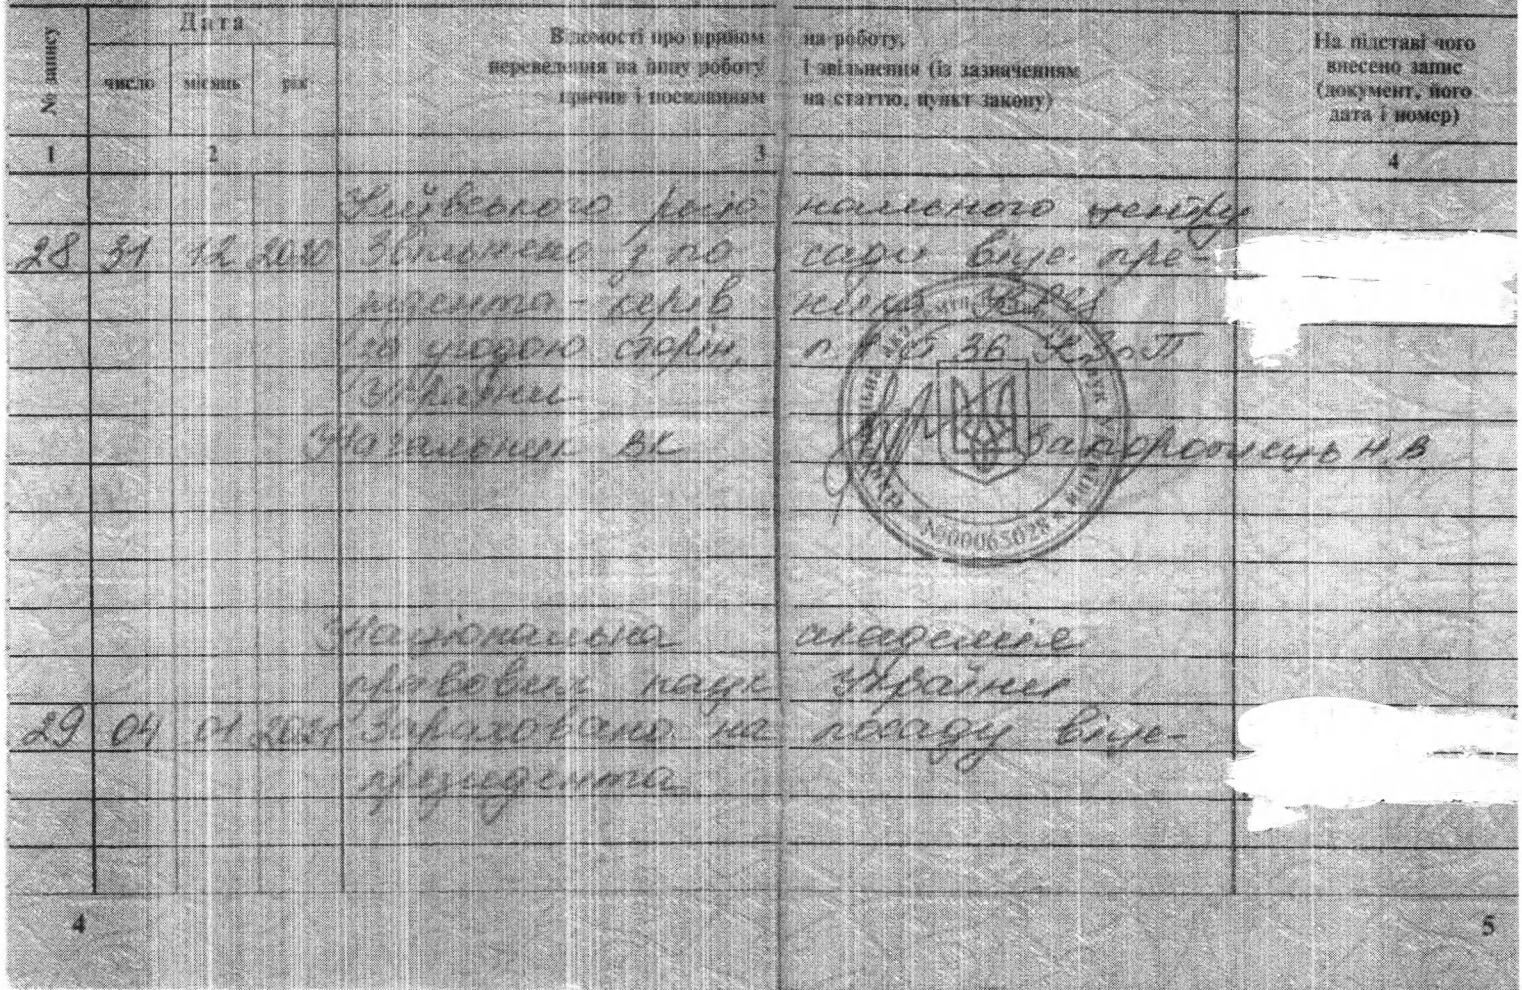 № запису
Дата
число місяць рік
Відомості про прийом на роботу,
переведення на іншу роботу і звільнення (із зазначенням
причин і посиланням на статтю, пункт закону)
На підставі чого
внесено запис
(документ, його
дата і номер)
1 2 3 4
Київського регіонального центру
28 31 12 2020 Звільнено з посади віце-пре-
зидента - керівника
за угодою сторін, п.1 ст 36 КЗпП
України
Начальник ВК Запоротиець Н.В
№00065028
Національна академія
правових наук України
29 04 01 2021 Зараховано на посаду віце-
президента
4 5